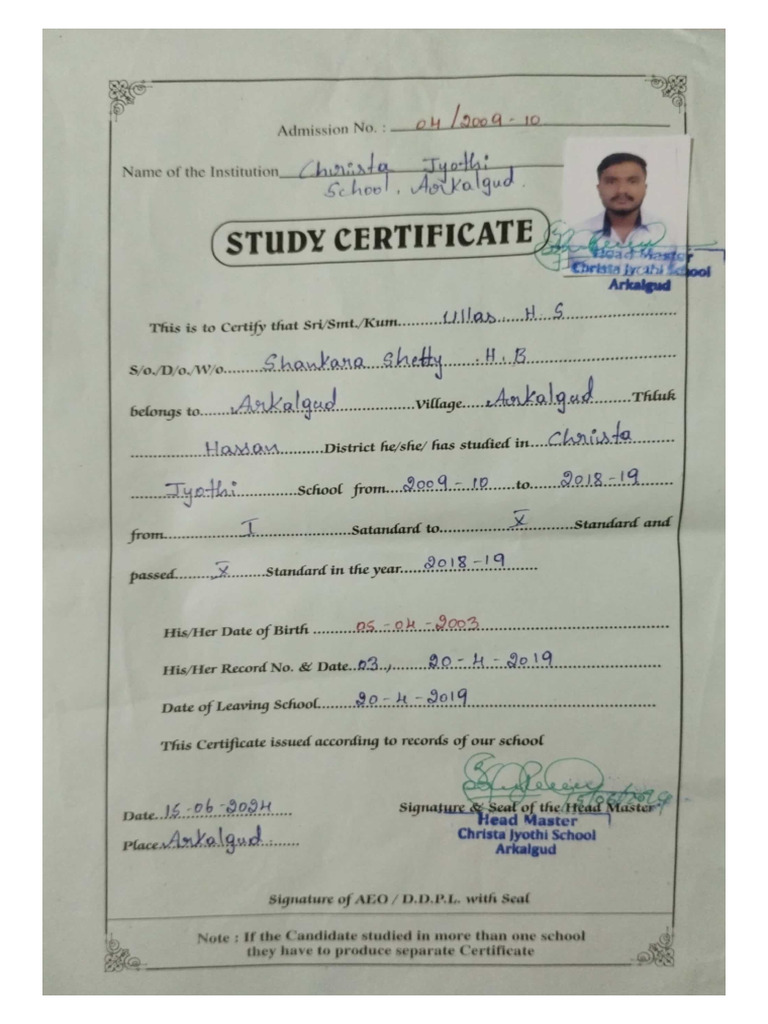 Admission No. : 04/2009-10
Name of the Institution Christa Jyothi
School, Arkalgud.
STUDY CERTIFICATE
Head Master
Christa Jyothi School
Arkalgud
This is to Certify that Sri/Smt./Kum. Ullas. H. S
S/o./D/o./W/o. Shankara Shetty . H. B
belongs to Arkalgud Village Arkalgud Thluk
Hassan District he/she/ has studied in Christa
Jyothi School from 2009-10 to 2018-19
from I Satandard to X Standard and
passed X Standard in the year 2018-19
His/Her Date of Birth 05-04-2003
His/Her Record No. & Date 03, 20-4-2019
Date of Leaving School 20-4-2019
This Certificate issued according to records of our school
Date 15-06-2024
Signature & Seal of the Head Master
Head Master
Christa Jyothi School
Arkalgud
Place Arkalgud
Signature of AEO / D.D.P.L. with Seal
Note : If the Candidate studied in more than one school
they have to produce separate Certificate